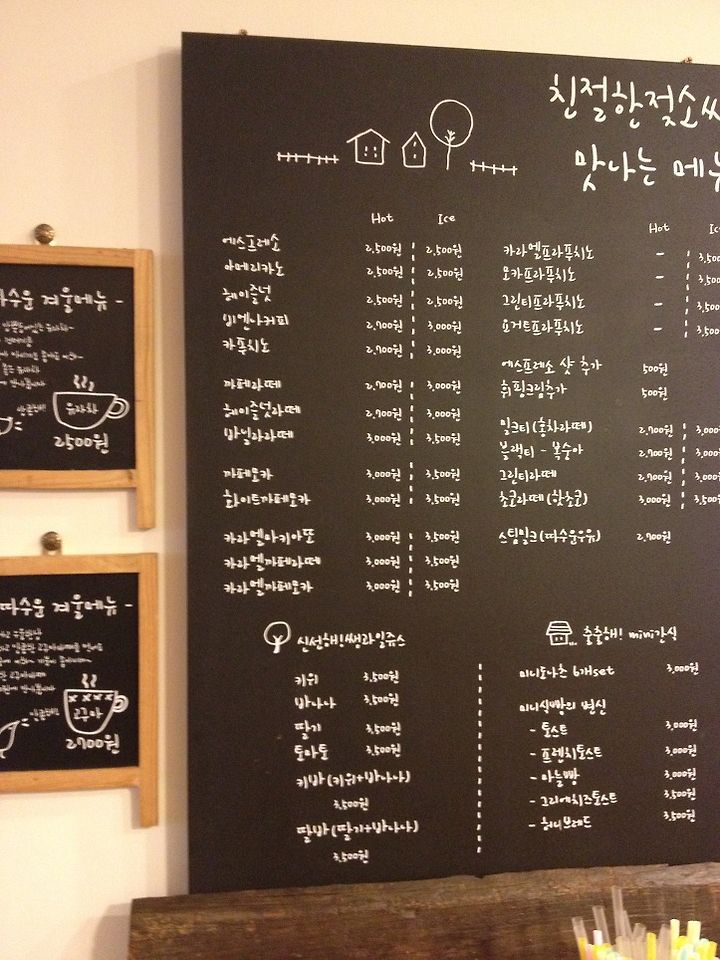 친절한젖소씨
맛나는 메뉴
Hot Ice
에스프레소 2,500원 2,500원
아메리카노 2,500원 2,500원
헤이즐넛 2,500원 2,500원
비엔나커피 2,700원 3,000원
카푸치노 2,700원 3,000원
까페라떼 2,700원 3,000원
헤이즐넛라떼 2,700원 3,000원
바닐라라떼 3,000원 3,500원
까페모카 3,000원 3,500원
화이트까페모카 3,000원 3,500원
카라멜마키아또 3,000원 3,500원
카라멜까페라떼 3,000원 3,500원
카라멜까페모카 3,000원 3,500원
Hot
카라멜프라푸치노 -
모카프라푸치노 -
그린티프라푸치노 -
요거트프라푸치노 -
에스프레소 샷 추가 500원
휘핑크림추가 500원
밀크티(홍차라떼) 2,700원
블랙티 - 복숭아 2,700원
그린티라떼 2,700원
초코라떼(핫초코) 3,000원
스팀밀크(따수운우유) 2,700원
신선해!쌩과일쥬스
키위 3,500원
바나나 3,500원
딸기 3,500원
토마토 3,500원
키바(키위+바나나)
3,500원
딸바(딸기+바나나)
3,500원
출출해! mini간식
미니도나츠 6개set 3,000원
미니식빵의 변신
- 토스트 3,000원
- 프렌치토스트 3,000원
- 마늘빵 3,000원
- 그리에치즈토스트 3,500원
- 허니브레드 3,500원
따수운 겨울메뉴 -
유자차
2500원
따수운 겨울메뉴 -
고구마
2700원